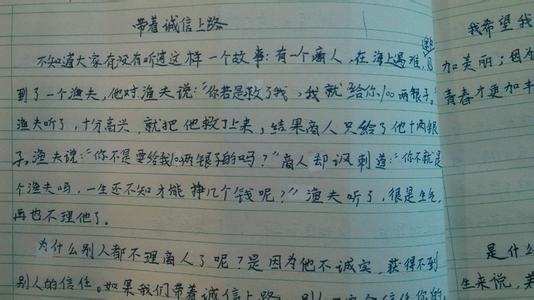 带着诚信上路
不知道大家有没有听过这样一个故事:有一个商人,在海上遇难,遇
到了一个渔夫,他对渔夫说:“你若是救了我,我就给你100两银子。”
渔夫听了,十分高兴,就把他救了上来,结果商人只给了他十两银
子,渔夫说:“你不是要给我100两银子的吗?”商人却讽刺道:“你不就是
个渔夫吗,一生还不知才能挣几个钱呢?”渔夫听了,很是生气,
再也不理他了。
为什么别人都不理商人了呢?是因为他不诚实,获得不到
别人的信任。如果我们带着诚信上路,别人
我希望我
加美丽;因为
青春才更加丰
是什么
生来说,若